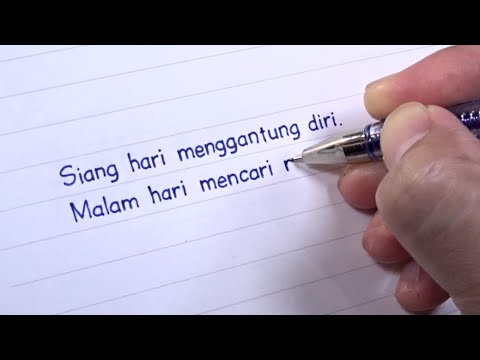 Siang hari menggantung diri.
Malam hari mencari r